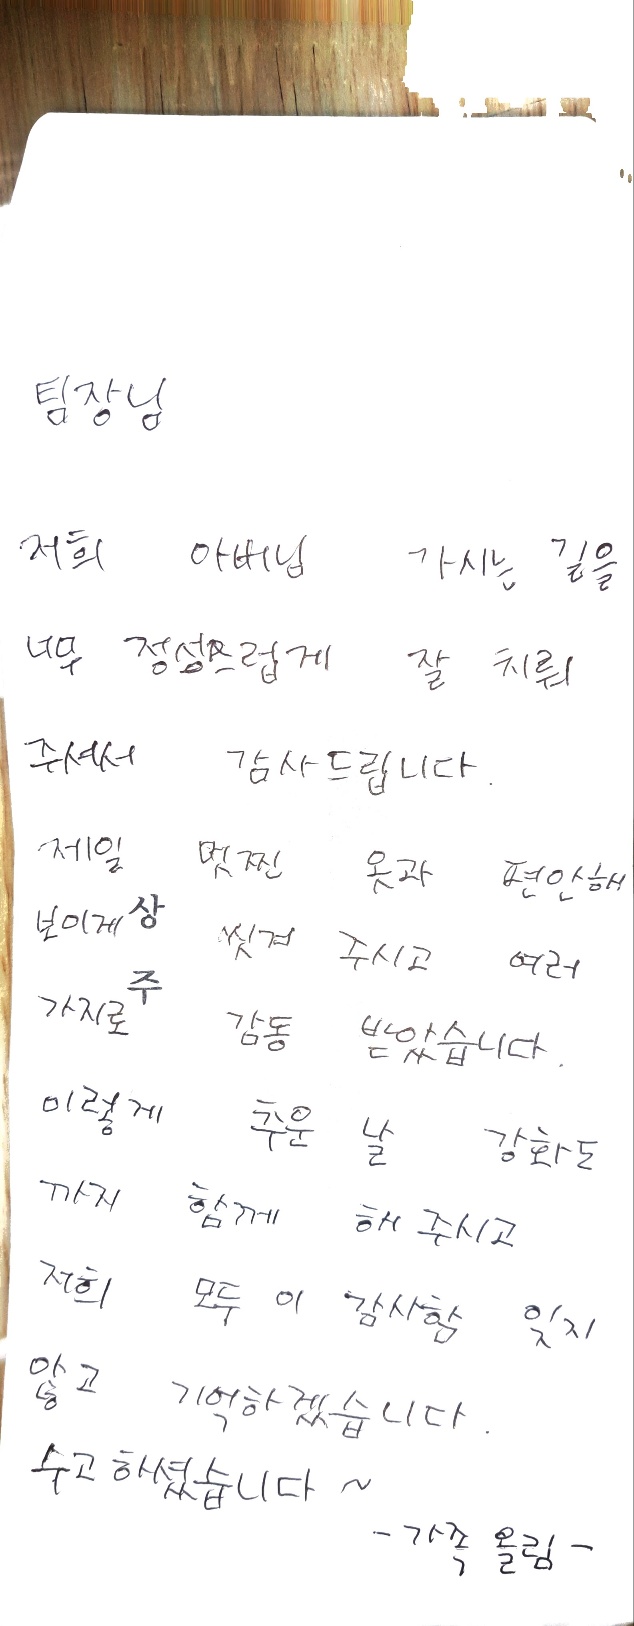 팀장님
저희 아버님 가시는 길을
너무 정성스럽게 잘 치뤄
주셔서 감사드립니다.
제일 멋찐 옷과 편안해
보이게 상 씻겨 주시고 여러
가지로 주 감동 받았습니다.
이렇게 추운 날 강화도
까지 함께 해 주시고
저희 모두 이 감사함 잊지
않고 기억하겠습니다.
수고하셨습니다~
-가족 올림-